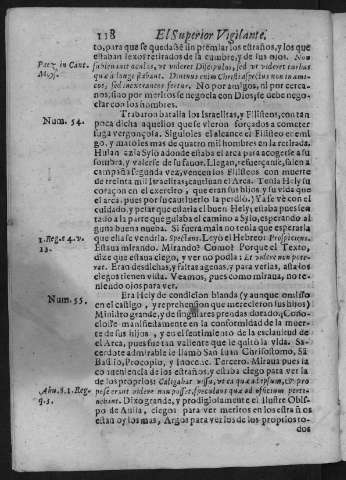 118 El Superior Vigilante.
to, para que se quedasse sin premiar los estraños, y los que
estaban lexos retirados de la cumbre, y de sus ojos. Non
sublevant oculos, ut videret Discipulos, sed ut videret turbas
quæ à longe stabant. Dominus enim Christi aspectus non in ami-
cos, sed in extraneos fertur. No por amigos, ni por cerca-
nos, sino por meritos se negocia con Dios, se debe nego-
ciar con los hombres.
Num. 54.
Trabaron batalla los Israelitas, y Filisteos, con tan
poca dicha aquellos que se vieron forçados a cometer
fuga vergonçosa. Siguioles el alcance el Filisteo enemi-
go, y matoles mas de quatro mil hombres en la retirada.
Huian azia Sylo adonde estaba el arca para acogerse a su
sombra, y valerse de su favor. Llegan, refuerçanse, salen a
campaña segunda vez, vencen los Filisteos con muerte
de treinta mil Israelitas, cautivan el Arca. Tenia Hely su
coraçon en el exercito, que eran sus hijos, y su vida que
el arca, pues por su cautiverio la perdiò. Y a se ve con el
cuidado, y pesar que estaria el buen Hely: estaba puesto sen-
tado a la parte que guiaba el camino a Sylo, esperando al-
guna buena nueva. Si fuera mala no tenia que esperarla
que ella se vendria. Spectans. Leyò el Hebreo: Prospiciens.
1. Reg. c. 4. v.
13.
Estaua mirando. Mirando? Como? Porque el Texto,
dize que estaua ciego, y ver no podia: Et videre non pote-
rat. Eran desdichas, y faltas agenas, y para verlas, aun los
ciegos tienen vista. Veamos, pues como miraua, no te-
niendo ojos para ver.
Num. 55.
Era Hely de condicion blanda (y aunque omisso
en el castigo, y reprehension que merecieron sus hijos)
Ministro grande, y de singulares prendas dorado, (Cono-
ciose manifiestamente en la conformidad de la muer-
te de sus hijos, y en el sentimiento de la esclavitud de
el Arca, pues fue tan valiente que le quitò la vida. Sa-
cerdote admirable le llamò San Iuan Chrisostomo, Sā
Basilio, Procopio, y Inocēc. Tercero. Miraua pues la
conveniencia de los estraños, y estaba ciego para ver la
de los proprios: Caligabat visu, ut ea quæ ad ipsum, & pro-
pe erant videre non posset, speculans quæ ad officium perti-
nebant. Dixo grande, y prodigiosamente el Ilustre Obis-
po de Auila, ciegos para ver meritos en los estraños
estan oy los mas, Argos para verlos de los proprios to-
dos